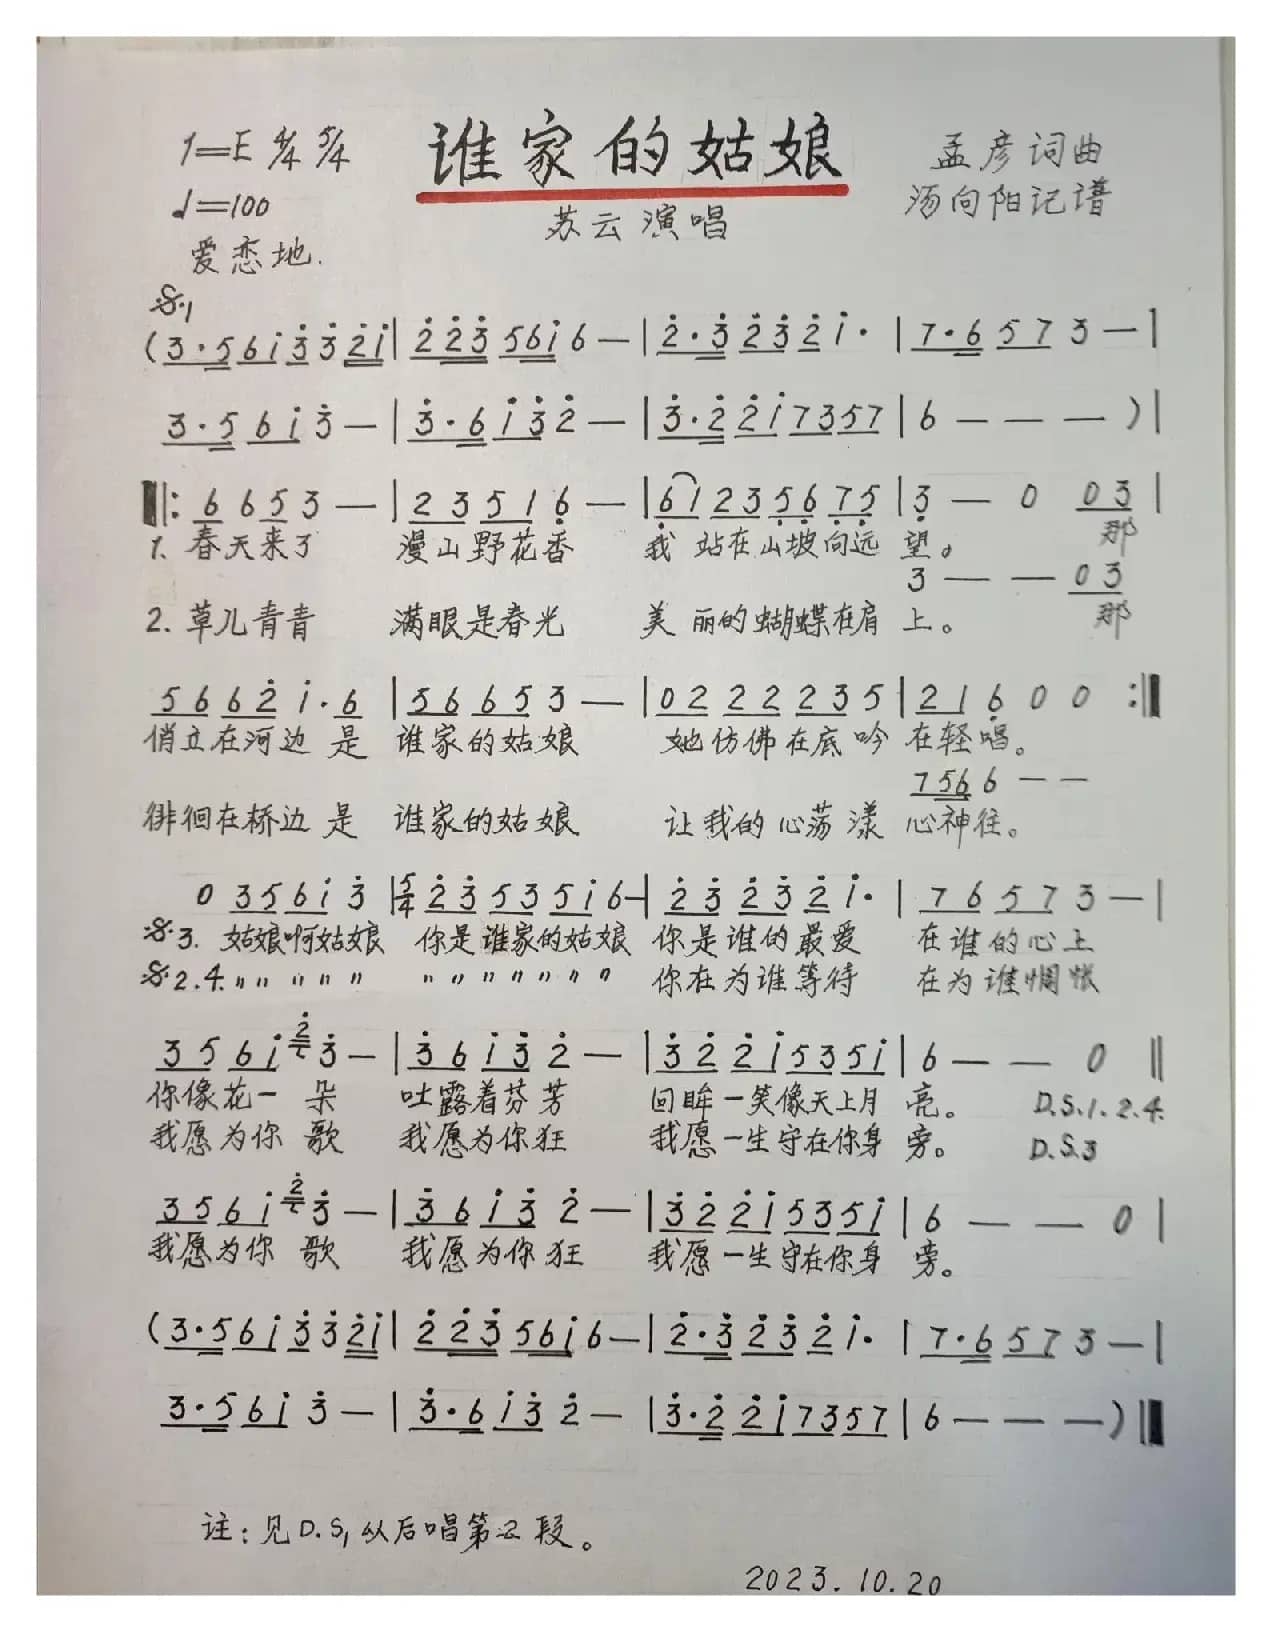 1=E 4/4 5/4
谁家的姑娘
孟彦词曲
♩=100
苏云演唱
汤向阳记谱
爱恋地.
𝄋.1
(3·56i3̇3̇2̇i|2̇2̇3̇56i6—|2̇·3̇2̇3̇2̇i·|7·6573—|
3·56i3̇—|3̇·6i3̇2̇—|3̇·2̇2̇i7357|6———)|
‖:6653—|23516̣—|6̣1235̣6̣7̣5̣|3̣—003|
1. 春天来了 漫山野花香 我站在山坡向远望。 那
3——03
2. 草儿青青 满眼是春光 美丽的蝴蝶在肩上。 那
5662̇i·6|56653—|0222235|216̣00:‖
俏立在河边是 谁家的姑娘 她仿佛在底吟 在轻唱。
7566——
徘徊在桥边是 谁家的姑娘 让我的心荡漾 心神往。
0356i3̇|5/4 2̇3̇535i6—|2̇3̇2̇3̇2̇i·|76573—|
𝄋.3. 姑娘啊姑娘 你是谁家的姑娘 你是谁的最爱 在谁的心上
𝄋.2.4. 〃〃〃〃〃 〃〃〃〃〃〃〃 你在为谁等待 在为谁惆怅
356i2̇3̇—|3̇6i3̇2̇—|3̇2̇2̇i535i|6——0‖
你像花一朵 吐露着芬芳 回眸一笑像天上月亮。 D.S.1.2.4.
我愿为你歌 我愿为你狂 我愿一生守在你身旁。 D.S.3
356i2̇3̇—|3̇6i3̇2̇—|3̇2̇2̇i535i|6——0|
我愿为你歌 我愿为你狂 我愿一生守在你身旁。
(3·56i3̇3̇2̇i|2̇2̇3̇56i6—|2̇·3̇2̇3̇2̇i·|7·6573—|
3·56i3̇—|3̇·6i3̇2̇—|3̇·2̇2̇i7357|6———)‖
注:见D.S,从后唱第2段。
2023.10.20